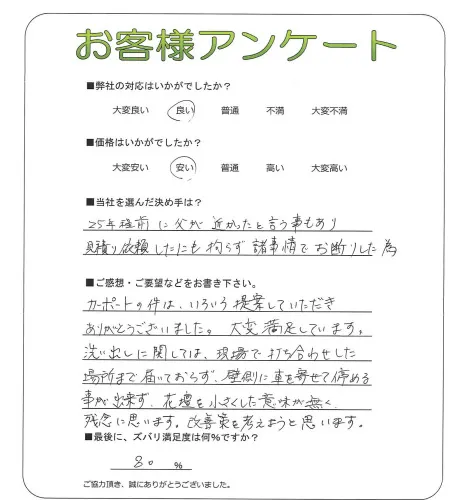 お客様アンケート
■弊社の対応はいかがでしたか?
大変良い 良い 普通 不満 大変不満
■価格はいかがでしたか?
大変安い 安い 普通 高い 大変高い
■当社を選んだ決め手は?
25年程前に父が近かったと言う事もあり
見積り依頼したにも拘らず諸事情でお断りした為
■ご感想・ご要望などをお書き下さい。
カーポートの件は、いろいろ提案していただき
ありがとうございました。大変満足しています。
洗い出しに関しては、現場で打ち合わせした
場所まで届いておらず、壁側に車を寄せて停める
事が出来ず、花壇を小さくした意味が無く、
残念に思います。改善策を考えようと思います。
■最後に、ズバリ満足度は何%ですか?
80 %
ご協力頂き、誠にありがとうございました。